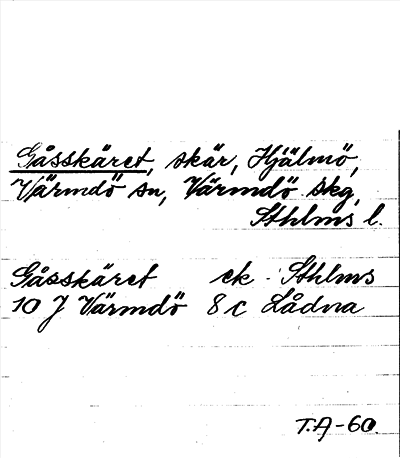 Gåsskäret, skär, Hjälmö,
Värmdö sn, Värmdö skg,
Sthlms l.
Gåsskäret ek. Sthlms
10 J Värmdö 8 c Lådna
T.A-60.